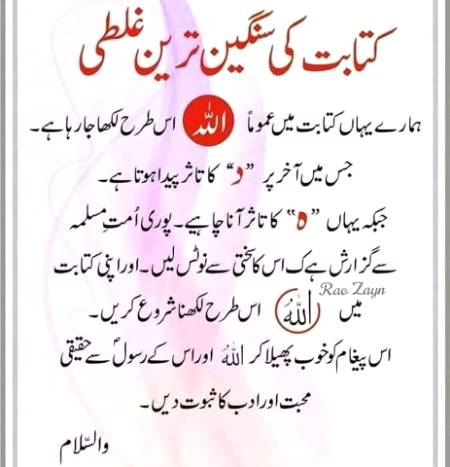 کتابت کی سنگین ترین غلطی
ہمارے یہاں کتابت میں عموماً اللہ اس طرح لکھا جا رہا ہے۔
جس میں آخر پر "د" کا تاثر پیدا ہوتا ہے۔
جبکہ یہاں "ہ" کا تاثر آنا چاہیے۔ پوری اُمتِ مسلمہ
سے گزارش ہے کہ اس کا سختی سے نوٹس لیں۔ اور اپنی کتابت
Rao Zayn
میں اللہُ اس طرح لکھنا شروع کریں۔
اس پیغام کو خوب پھیلا کر اللہُ اور اس کے رسولؐ سے حقیقی
محبت اور ادب کا ثبوت دیں۔
والسّلام